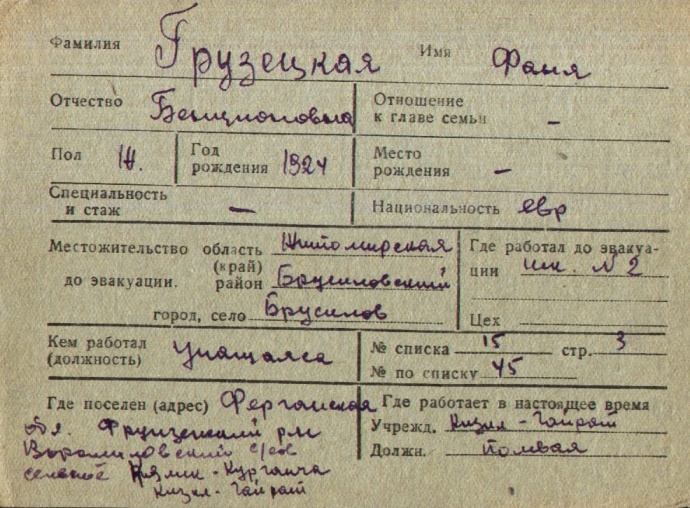 Фамилия Грузецкая Имя Фаня
Отчество Бенционовна Отношение к главе семьи –
Пол Ж. Год рождения 1924 Место рождения –
Специальность и стаж – Национальность евр
Местожительство до эвакуации. область (край) Житомирская Где работал до эвакуации шк. N 2
район Брусиловский
город, село Брусилов Цех
Кем работал (должность) учащаяся № списка 15 стр. 3
№ по списку 45
Где поселен (адрес) Ферганская Где работает в настоящее время
обл. Фрунзенский р-н Учрежд. Кизил-Гайрат
Ворошиловский с/сов Должн.
Кизил-Гайрат